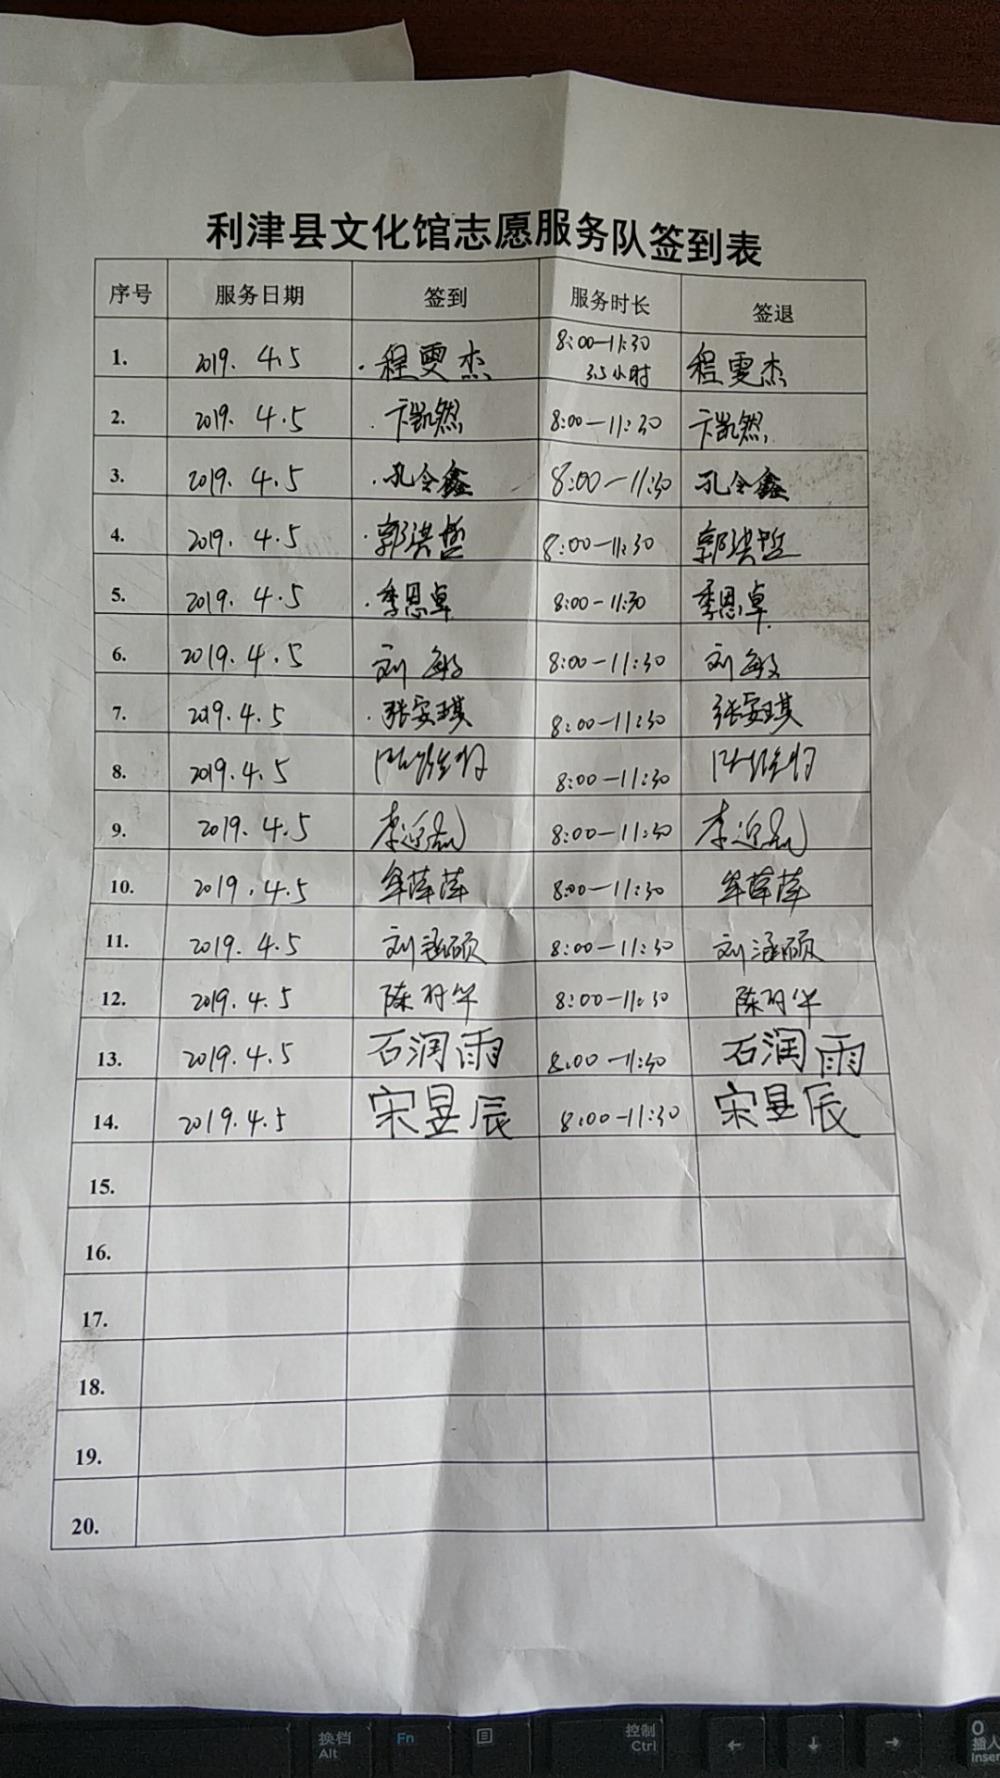 利津县文化馆志愿服务队签到表
序号 服务日期 签到 服务时长 签退
1. 2019.4.5 程雯杰 8:00-11:30 3.5小时 程雯杰
2. 2019.4.5 卞凯然 8:00-11:30 卞凯然
3. 2019.4.5 孔令鑫 8:00-11:30 孔令鑫
4. 2019.4.5 郭洪哲 8:00-11:30 郭洪哲
5. 2019.4.5 季恩卓 8:00-11:30 季恩卓
6. 2019.4.5 刘敏 8:00-11:30 刘敏
7. 2019.4.5 张安琪 8:00-11:30 张安琪
8. 2019.4.5 8:00-11:30
9. 2019.4.5 8:00-11:30
10. 2019.4.5 牟萍萍 8:00-11:30 牟萍萍
11. 2019.4.5 刘涵硕 8:00-11:30 刘涵硕
12. 2019.4.5 陈 华 8:00-11:30 陈 华
13. 2019.4.5 石润雨 8:00-11:30 石润雨
14. 2019.4.5 宋昱辰 8:00-11:30 宋昱辰
15.
16.
17.
18.
19.
20.
换档 Fn 控制 0
Alt Ctrl ← ↓ → 插入
Inser